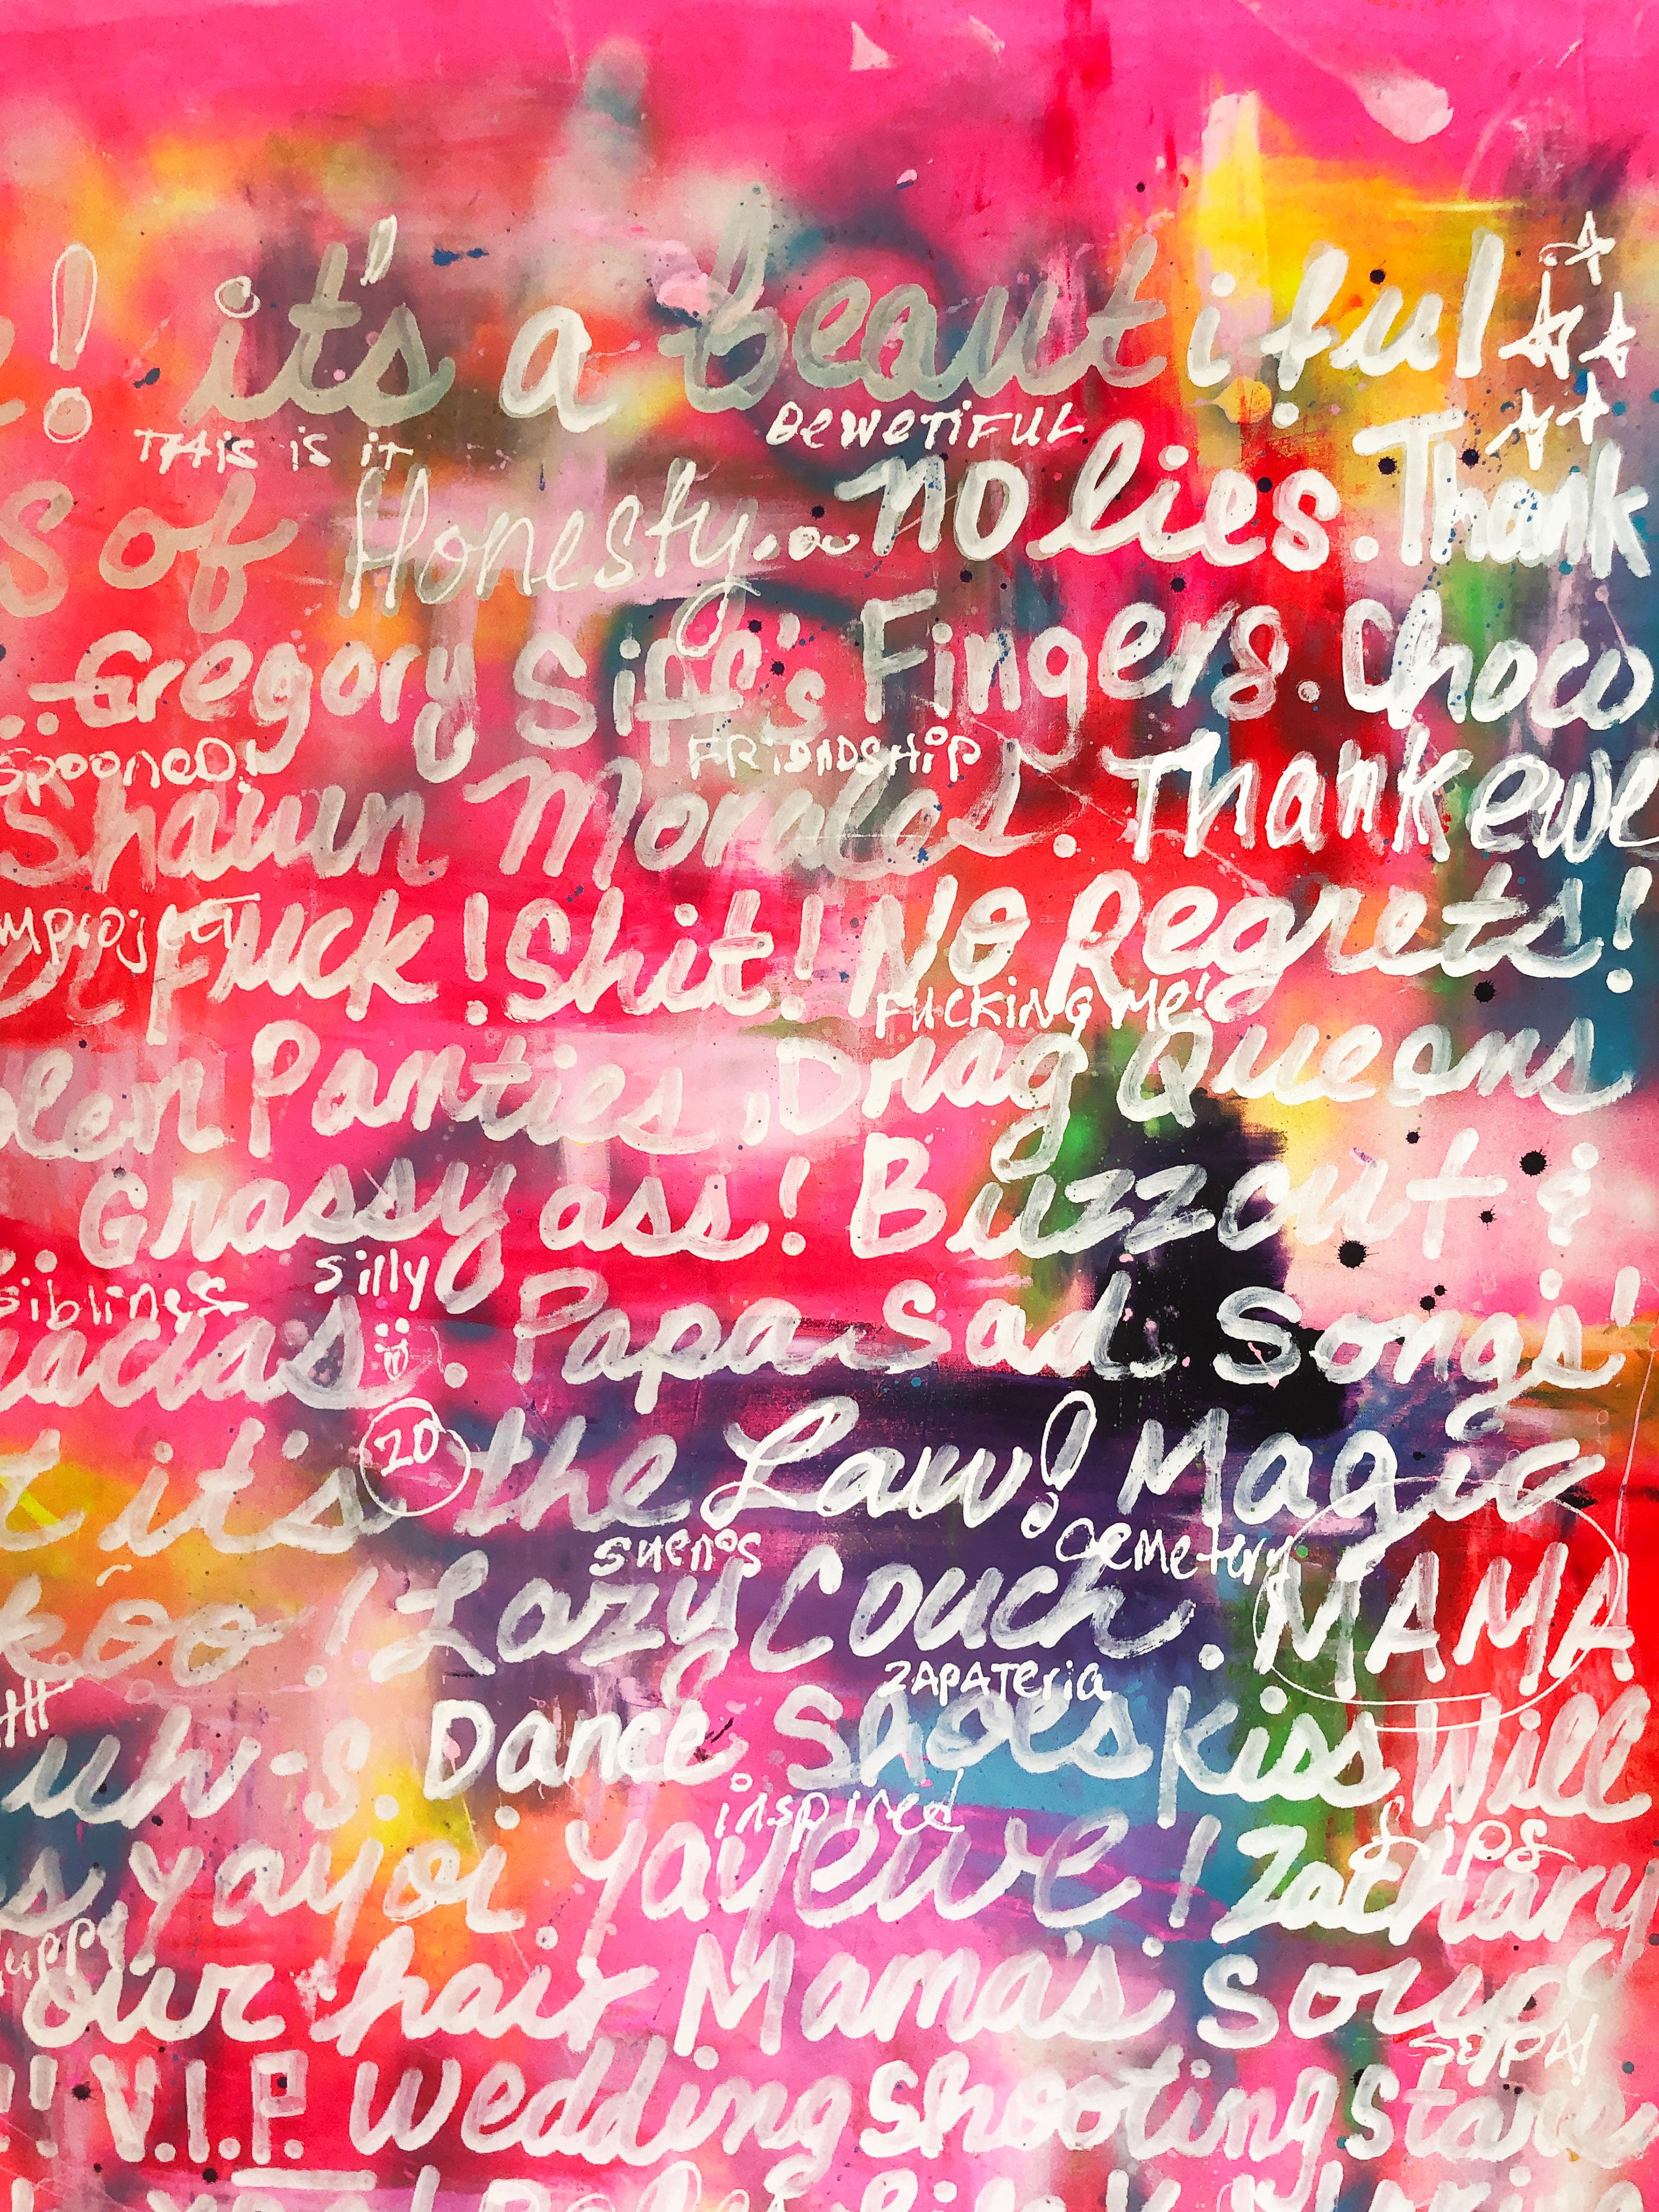 ! it's a beautiful
THis is it BeWeTiFUL
S of Honesty... no lies. Thank
...Gregory Siff's Fingers. Choco
spooned! FRiendship
Shaun Morales. Thankewe
mproject
Fuck! Shit! No Regrets!
FUCKING Me!
Panties, Drag Queens
.. Grassyass! Buzzcut &
siblings silly
acias. Papa Sad. Songs'
20
t it's the Law! Magic
sueños cemetery
köö! Lazy Couch. MAMA
ZAPATeria
uh-s. Dance Shoes Kiss Will
inspired Lips
s yayoi. Yayewe! Zachary
uppy
our hair Mama's soup
SOPA!
!! V.I.P. Wedding Shooting Stars